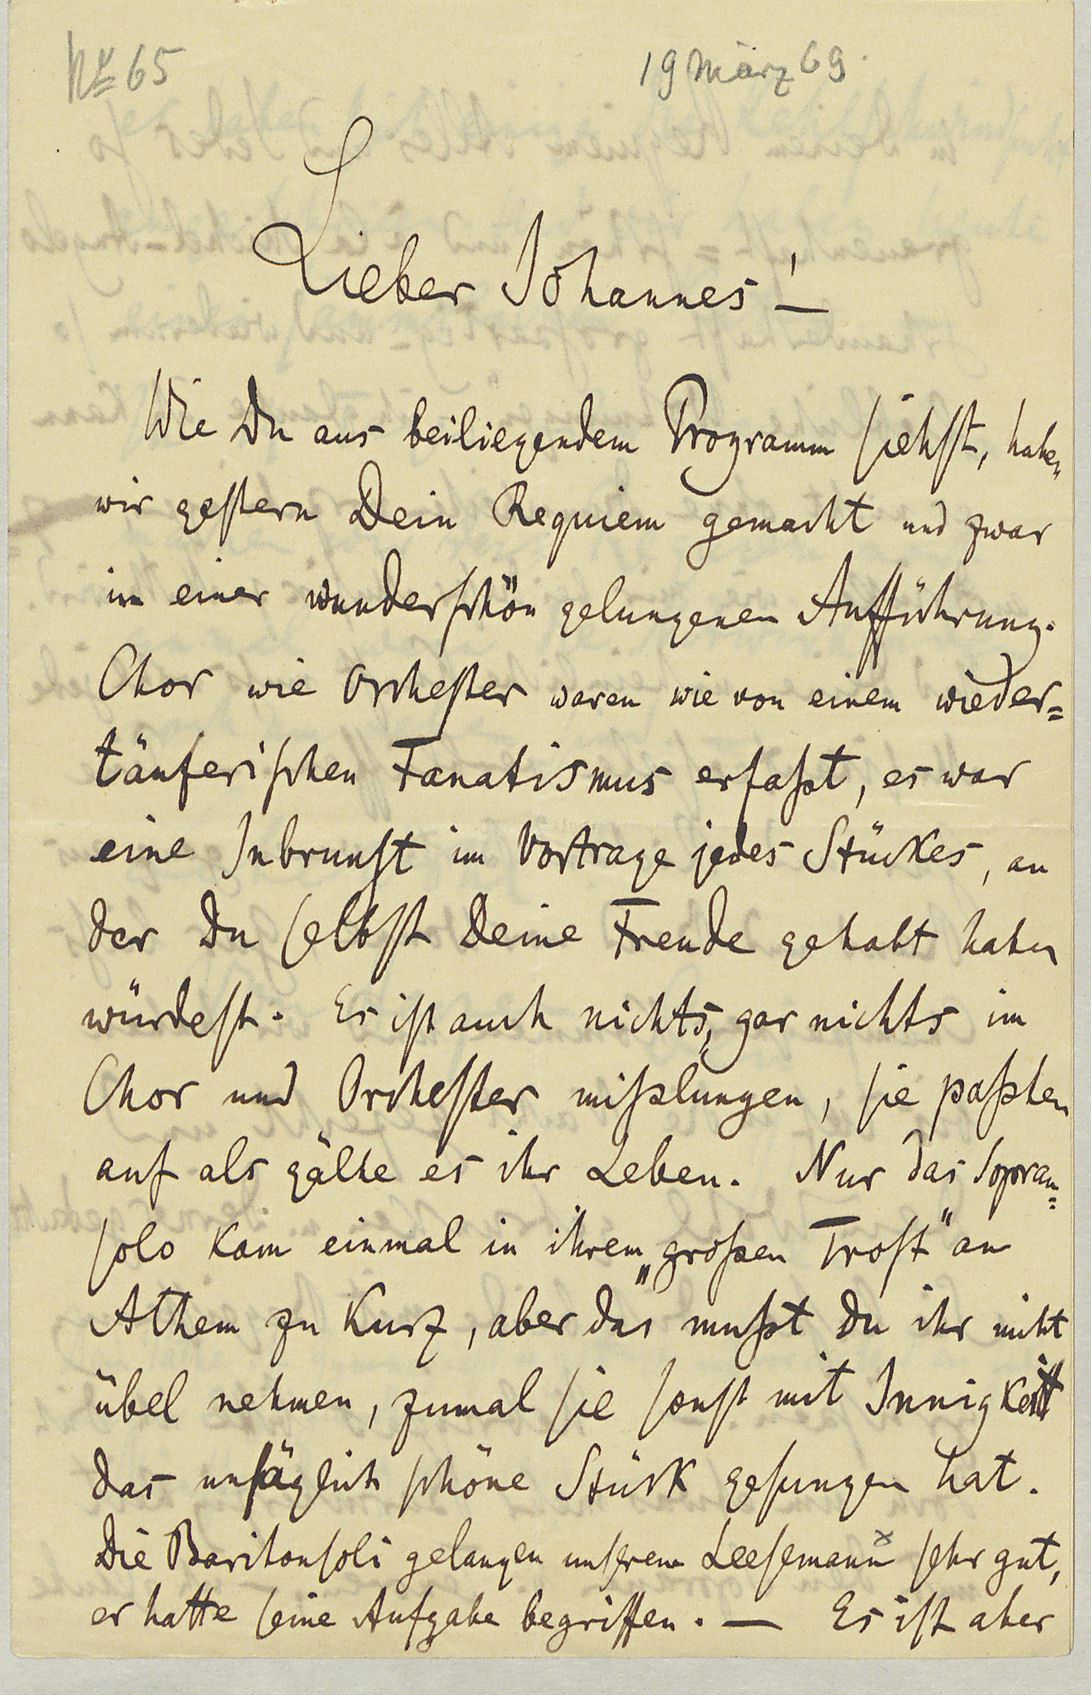 No 65
19 März 69.
Lieber Johannes!
Wie Du aus beiliegendem Programm siehst, haben
wir gestern Dein Requiem gemacht und zwar
in einer wunderschön gelungenen Aufführung.
Chor wie Orchester waren wie von einem wieder=
täuferischen Fanatismus erfaßt, es war
eine Inbrunst im Vortrage jedes Stückes, an
der Du selbst Deine Freude gehabt haben
würdest. Es ist auch nichts, gar nichts im
Chor und Orchester mißlungen, sie paßten
auf als gälte es ihr Leben. Nur das Sopran=
solo kam einmal in ihrem „großen Trost" an
Athem zu kurz, aber das mußt Du ihr nicht
übel nehmen, zumal sie sonst mit Innigkeit
das unsäglich schöne Stück gesungen hat.
Die Baritonsoli gelangen unserem Leesemann x sehr gut,
er hatte seine Aufgabe begriffen. — Es ist aber